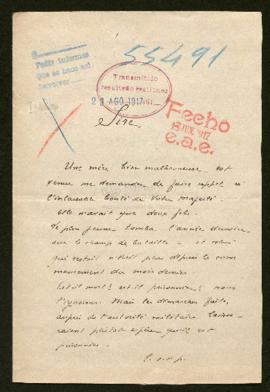 Pedir informes
que se han de
devolver
55491
Transmitido
resultado gestiones
23 AGO. 1917
Fecho
18 DIC. 917
e.a.e.
Sire
Une mère bien malheureuse est
venue me demander de faire appel à
l'inlassable bonté de Votre Majesté
Elle n'avait que deux fils.
Le plus jeune tomba l'année dernière
sur le champ de bataille — et celui
qui restait n'écrit plus depuis le com-
mencement du mois dernier
Est-il mort? est-il prisonnier? nous
l'ignorons. Mais les démarches faites
auprès de l'autorité militaire laisse-
raient plutôt espérer qu'il est
prisonnier.